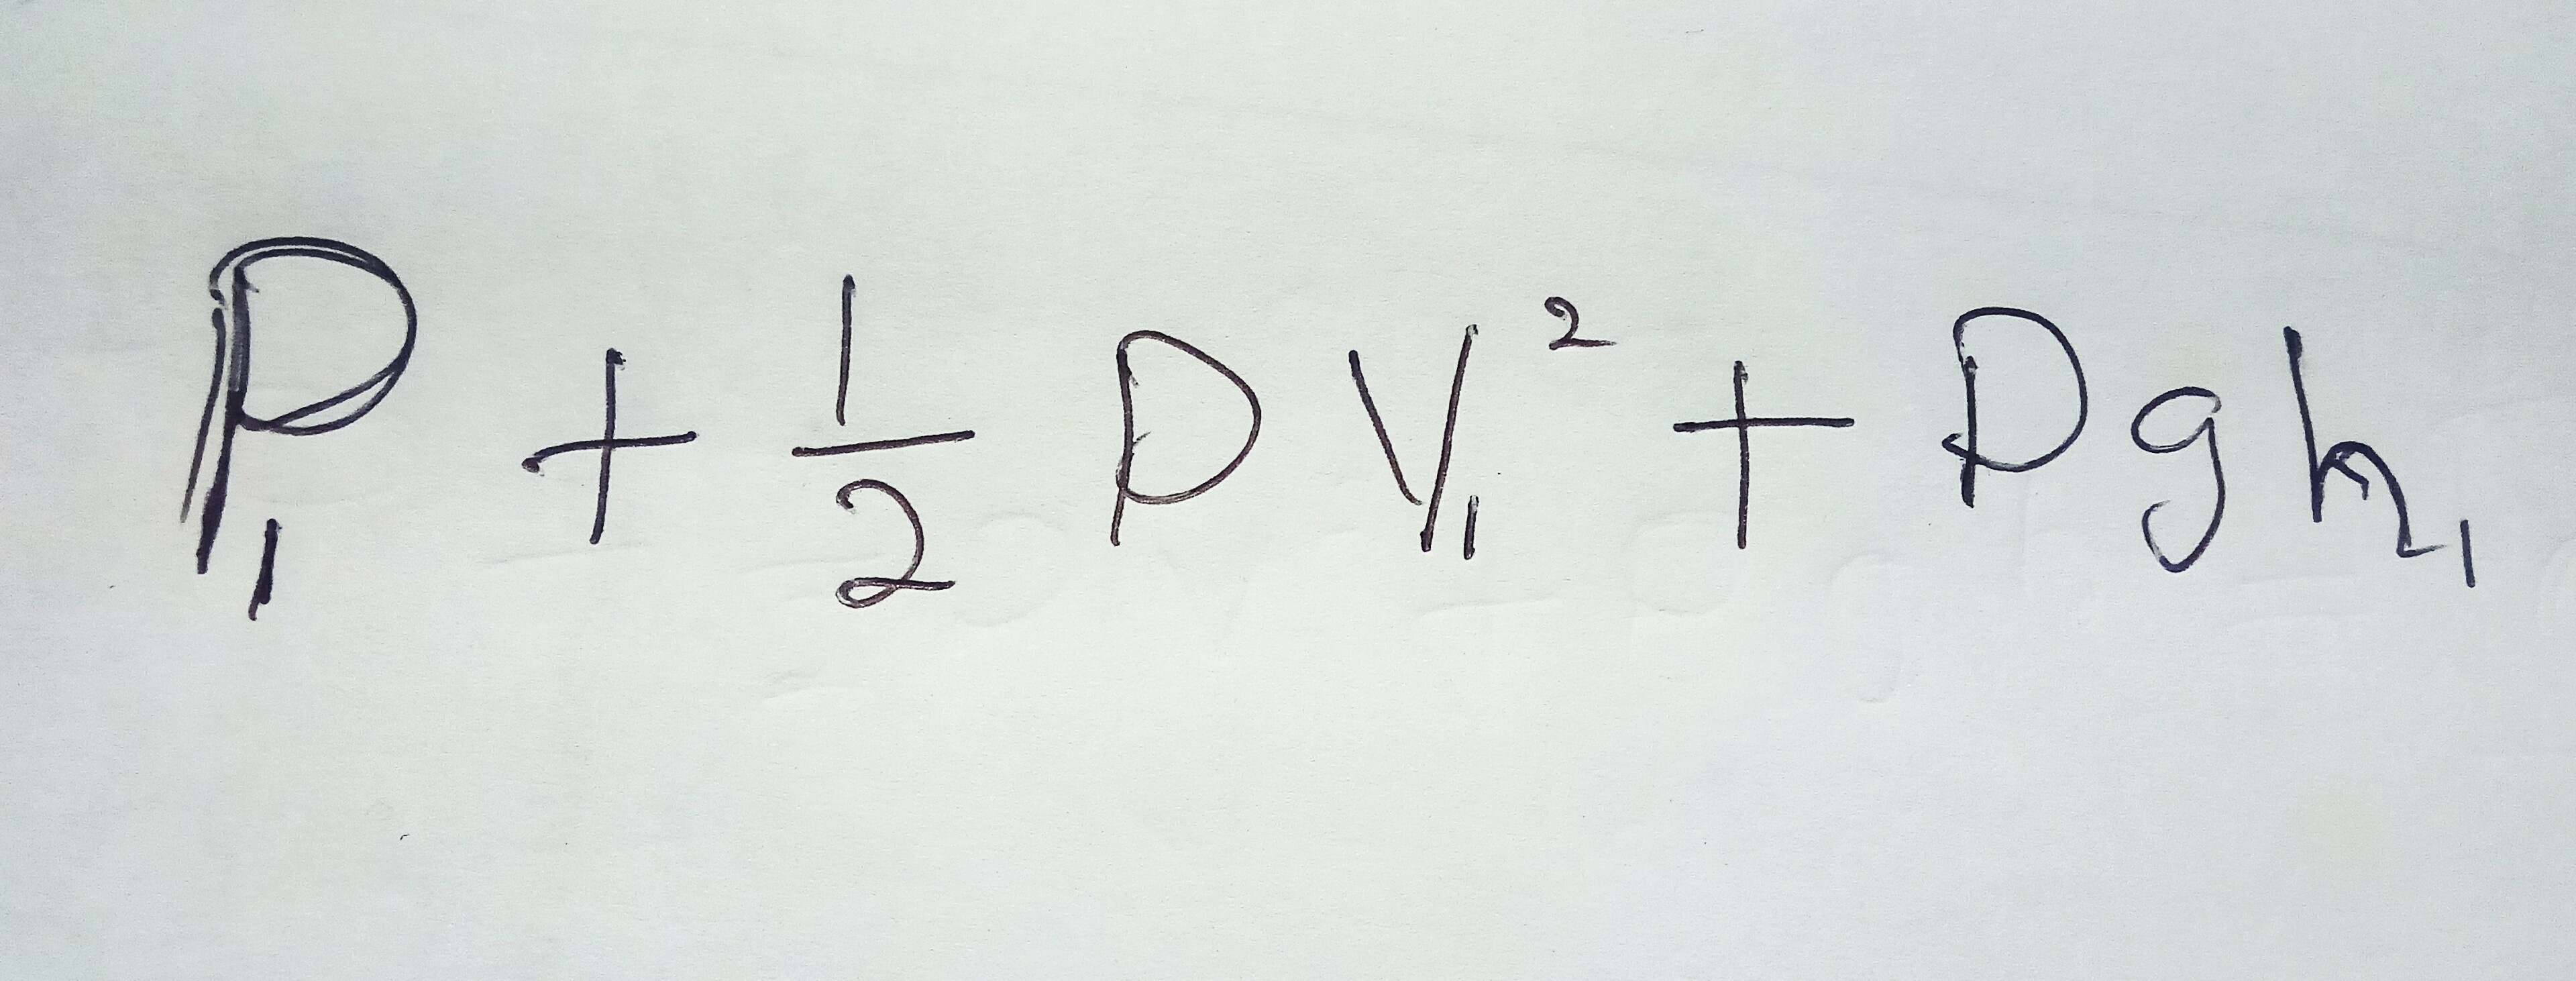 P₁ + 1/2 ρ V₁² + ρ g h₁